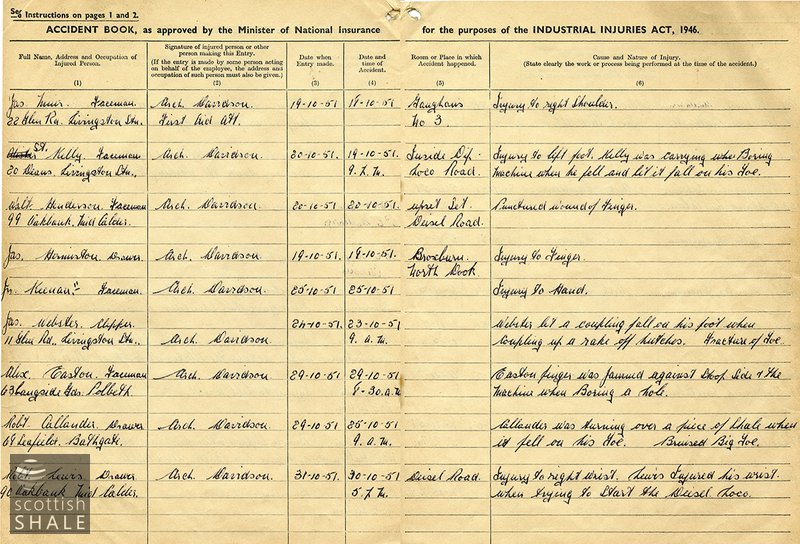 See Instructions on pages 1 and 2.
ACCIDENT BOOK, as approved by the Minister of National Insurance for the purposes of the INDUSTRIAL INJURIES ACT, 1946.
Full Name, Address and Occupation of Injured Person.
(1)
Signature of injured person or other person making this Entry.
(If the entry is made by some person acting on behalf of the employee, the address and occupation of such person must also be given.)
(2)
Date when Entry made.
(3)
Date and time of Accident.
(4)
Room or Place in which Accident happened.
(5)
Cause and Nature of Injury.
(State clearly the work or process being performed at the time of the accident.)
(6)
Jas. Muir. Faceman Arch. Davidson. 19-10-51 18-10-51 Gaughans Injury to right Shoulder.
22 Glen Rd. Livingston Stn. First Aid Att. No 3
St. Kelly. Faceman Arch. Davidson. 20-10-51. 19-10-51. Inside Dip. Injury to left foot. Kelly was carrying who Boring
20 Deans. Livingston Stn. 9. P.M. Loco Road. Machine when he fell and let it fall on his Toe.
Walt. Henderson. Faceman Arch. Davidson. 20-10-51 20-10-51 upset Set. Punctured wound of Finger.
99 Oakbank. Mid Calder. Diesel Road.
Jas. Hermiston. Drawer Arch. Davidson. 19-10-51 19-10-51. Broxburn. Injury to Finger.
North Dook.
Keenan. Faceman. Arch. Davidson. 25-10-51 25-10-51 Injury to Hand.
Jas. Webster. Clipper. 24-10-51 23-10-51 Webster let a coupling fall on his foot when
11 Glen Rd. Livingston Stn. Arch. Davidson. 9. a.m. coupling up a rake off hutches. Fracture of Toe.
Alex. Easton. Faceman Arch. Davidson 29-10-51 29-10-51 Easton finger was jammed against Stoop Side & the
63 Langside Gds. Polbeth. 8-30. a.m Machine when Boring a hole.
Robt. Callander. Drawer Arch. Davidson. 29-10-51 26-10-51 Callander was turning over a piece of Shale when
69 Leafield. Bathgate. 9. a.m. it fell on his Toe. Bruised Big Toe.
Lewis Drawer Arch. Davidson. 31-10-51 30-10-51 Diesel Road. Injury to right wrist. Lewis Injured his wrist
90 Oakbank Mid Calder. 5. P.M. when trying to Start the Diesel Loco.
scottish
SHALE